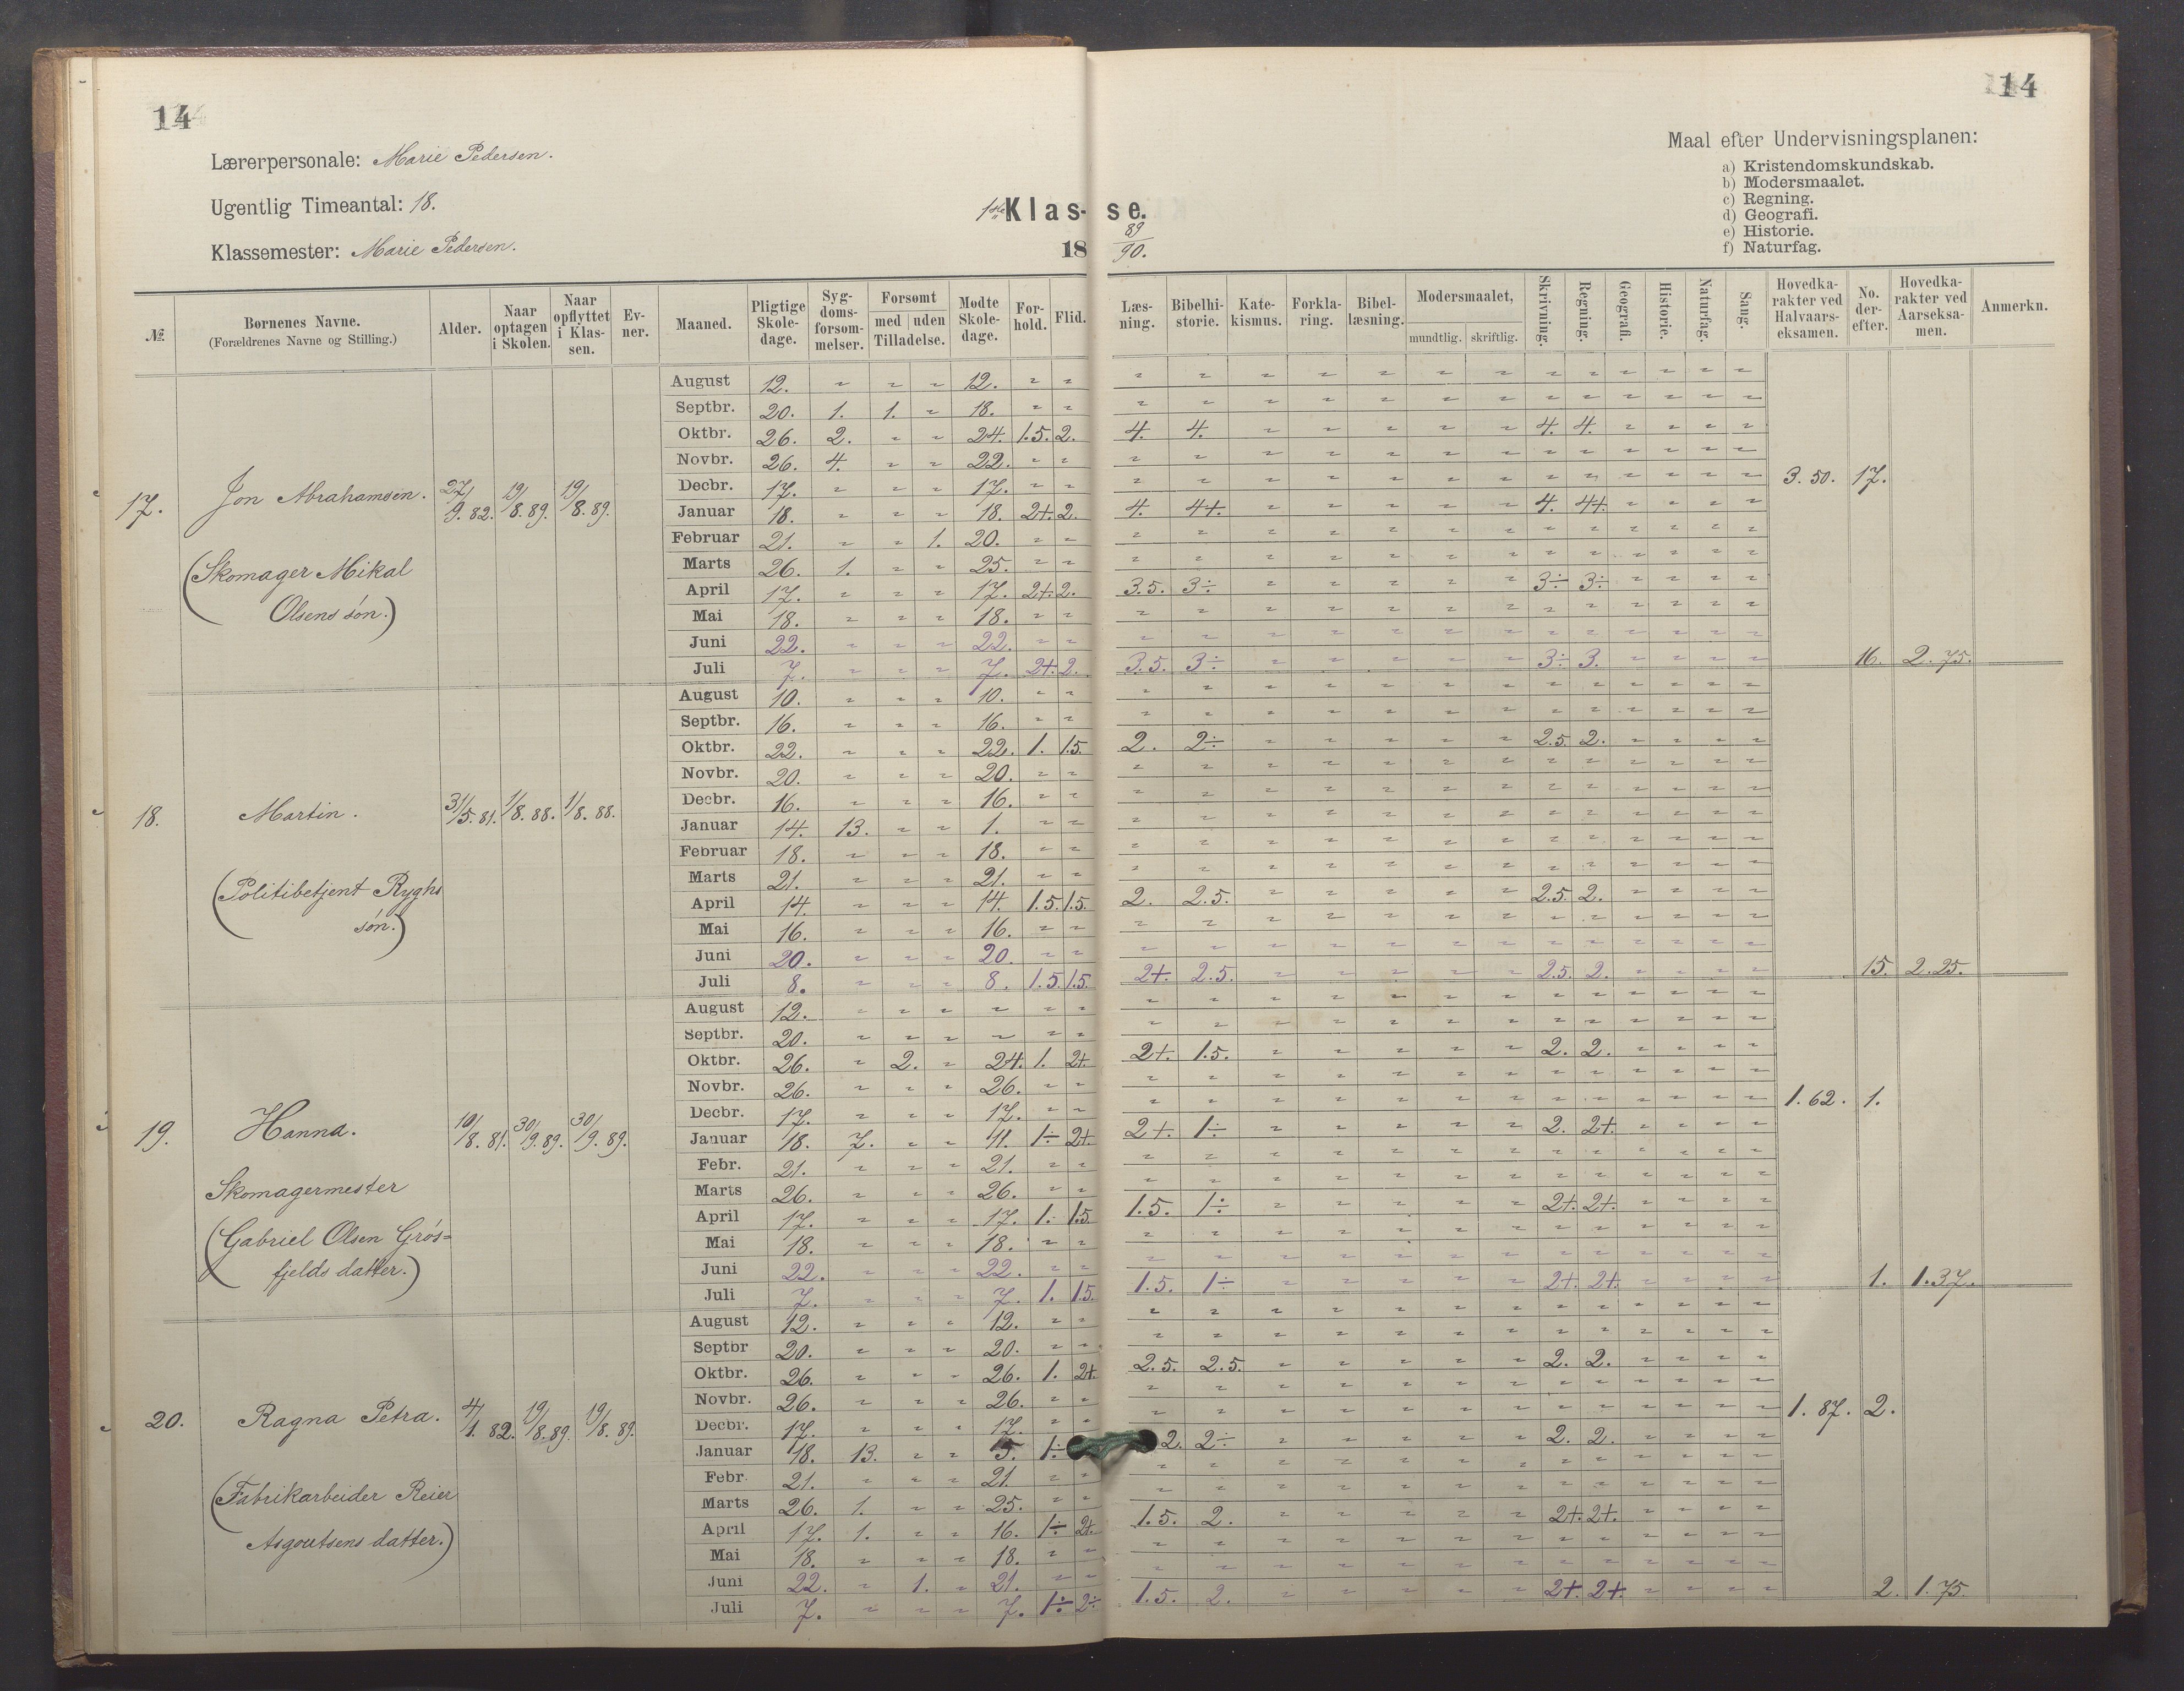 14
Lærerpersonale: Marie Pedersen.
Ugentlig Timeantal: 18.
Klassemester: Marie Pedersen.
1ste Klas-
18
14
Maal efter Undervisningsplanen:
a) Kristendomskundskab.
b) Modersmaalet.
c) Regning.
d) Geografi.
e) Historie.
f) Naturfag.
se.
89
90.
№ Børnenes Navne. (Forældrenes Navne og Stilling.) Alder. Naar optagen i Skolen. Naar opflyttet i Klassen. Evner. Maaned. Pligtige Skoledage. Sygdomsforsømmelser. Forsømt med uden Tilladelse. Mødte Skoledage. Forhold. Flid. Læsning. Bibelhistorie. Katekismus. Forklaring. Bibellæsning. Modersmaalet, mundtlig. skriftlig. Skrivning. Regning. Geografi. Historie. Naturfag. Sang. Hovedkarakter ved Halvaarseksamen. No. derefter. Hovedkarakter ved Aarseksamen. Anmerkn.
17. Jon Abrahamsen. 27/9. 82. 19/8. 89. 19/8. 89.
(Skomager Mikal
Olsens søn.)
August 12. " " " 12. " "
Septbr. 20. 1. 1. " 18. " "
Oktbr. 26. 2. " " 24. 1.5. 2. 4. 4. " " " " " 4. 4. " " " "
Novbr. 26. 4. " " 22. " "
Decbr. 17. " " " 17. " " 3.50. 17.
Januar 18. " " " 18. 2+. 2. 4. 4+. " " " " " 4. 4+. " " " "
Februar 21. " " 1. 20. " "
Marts 26. 1. " " 25. " "
April 17. " " " 17. 2+. 2. 3.5. 3÷ " " " " " 3÷ 3÷ " " " "
Mai 18. " " " 18. " "
Juni 22. " " " 22. " "
Juli 7. " " " 7. 2+. 2. 3.5. 3÷ " " " " " 3÷ 3. " " " " 16. 2.75.
18. Martin. 31/5. 81. 1/8. 88. 1/8. 88.
(Politibetjent Ryghs
søn.)
August 10. " " " 10. " "
Septbr. 16. " " " 16. " "
Oktbr. 22. " " " 22. 1. 1.5. 2. 2÷ " " " " " 2.5. 2. " " " "
Novbr. 20. " " " 20. " "
Decbr. 16. " " " 16. " "
Januar 14. 13. " " 1. " "
Februar 18. " " " 18. " "
Marts 21. " " " 21. " "
April 14. " " " 14. 1.5. 1.5. 2. 2.5. " " " " " 2.5. 2. " " " "
Mai 16. " " " 16. " "
Juni 20. " " " 20. " "
Juli 8. " " " 8. 1.5. 1.5. 2+. 2.5. " " " " " 2.5. 2. " " " " 15. 2.25.
19. Hanna. 10/8. 81. 30/9. 89. 30/9. 89.
Skomagermester
(Gabriel Olsen Grøs=
fjelds datter.)
August 12. " " " " " "
Septbr. 20. " " " " " "
Oktbr. 26. " 2. " 24. 1. 2+. 2+. 1.5. " " " " " 2. 2. " " " "
Novbr. 26. " " " 26. " "
Decbr. 17. " " " 17. " " 1.62. 1.
Januar 18. 7. " " 11. 1÷ 2+. 2+. 1÷ " " " " " 2. 2+. " " " "
Febr. 21. " " " 21. " "
Marts 26. " " " 26. " "
April 17. " " " 17. 1. 1.5. 1.5. 1÷ " " " " " 2+. 2+. " " " "
Mai 18. " " " 18. " "
Juni 22. " " " 22. " "
Juli 7. " " " 7. 1. 1.5. 1.5. 1÷ " " " " " 2+. 2+. " " " " 1. 1.37.
20. Ragna Petra. 4/1. 82. 19/8. 89. 19/8. 89.
(Fabrikarbeider Reier
Asgoutsens datter.)
August 12. " " " 12. " "
Septbr 20. " " " 20. " "
Oktbr. 26. " " " 26. 1. 2+. 2.5. 2.5. " " " " " 2. 2. " " " "
Novbr. 26. " " " 26. " "
Decbr. 17. " " " 17. " " 1.87. 2.
Januar 18. 13. " " 5. 1÷ 2. 2÷ " " " " " 2. 2. " " " "
Febr. 21. " " " 21. " "
Marts 26. 1. " " 25. " "
April 17. 1. " " 16. 1÷ 2+. 1.5. 2. " " " " " 2+. 2+. " " " "
Mai 18. " " " 18. " "
Juni 22. " 1. " 21. " "
Juli 7. " " " 7. 1÷ 2÷ 1.5. 2. " " " " " 2+. 2+. " " " " 2. 1.75.